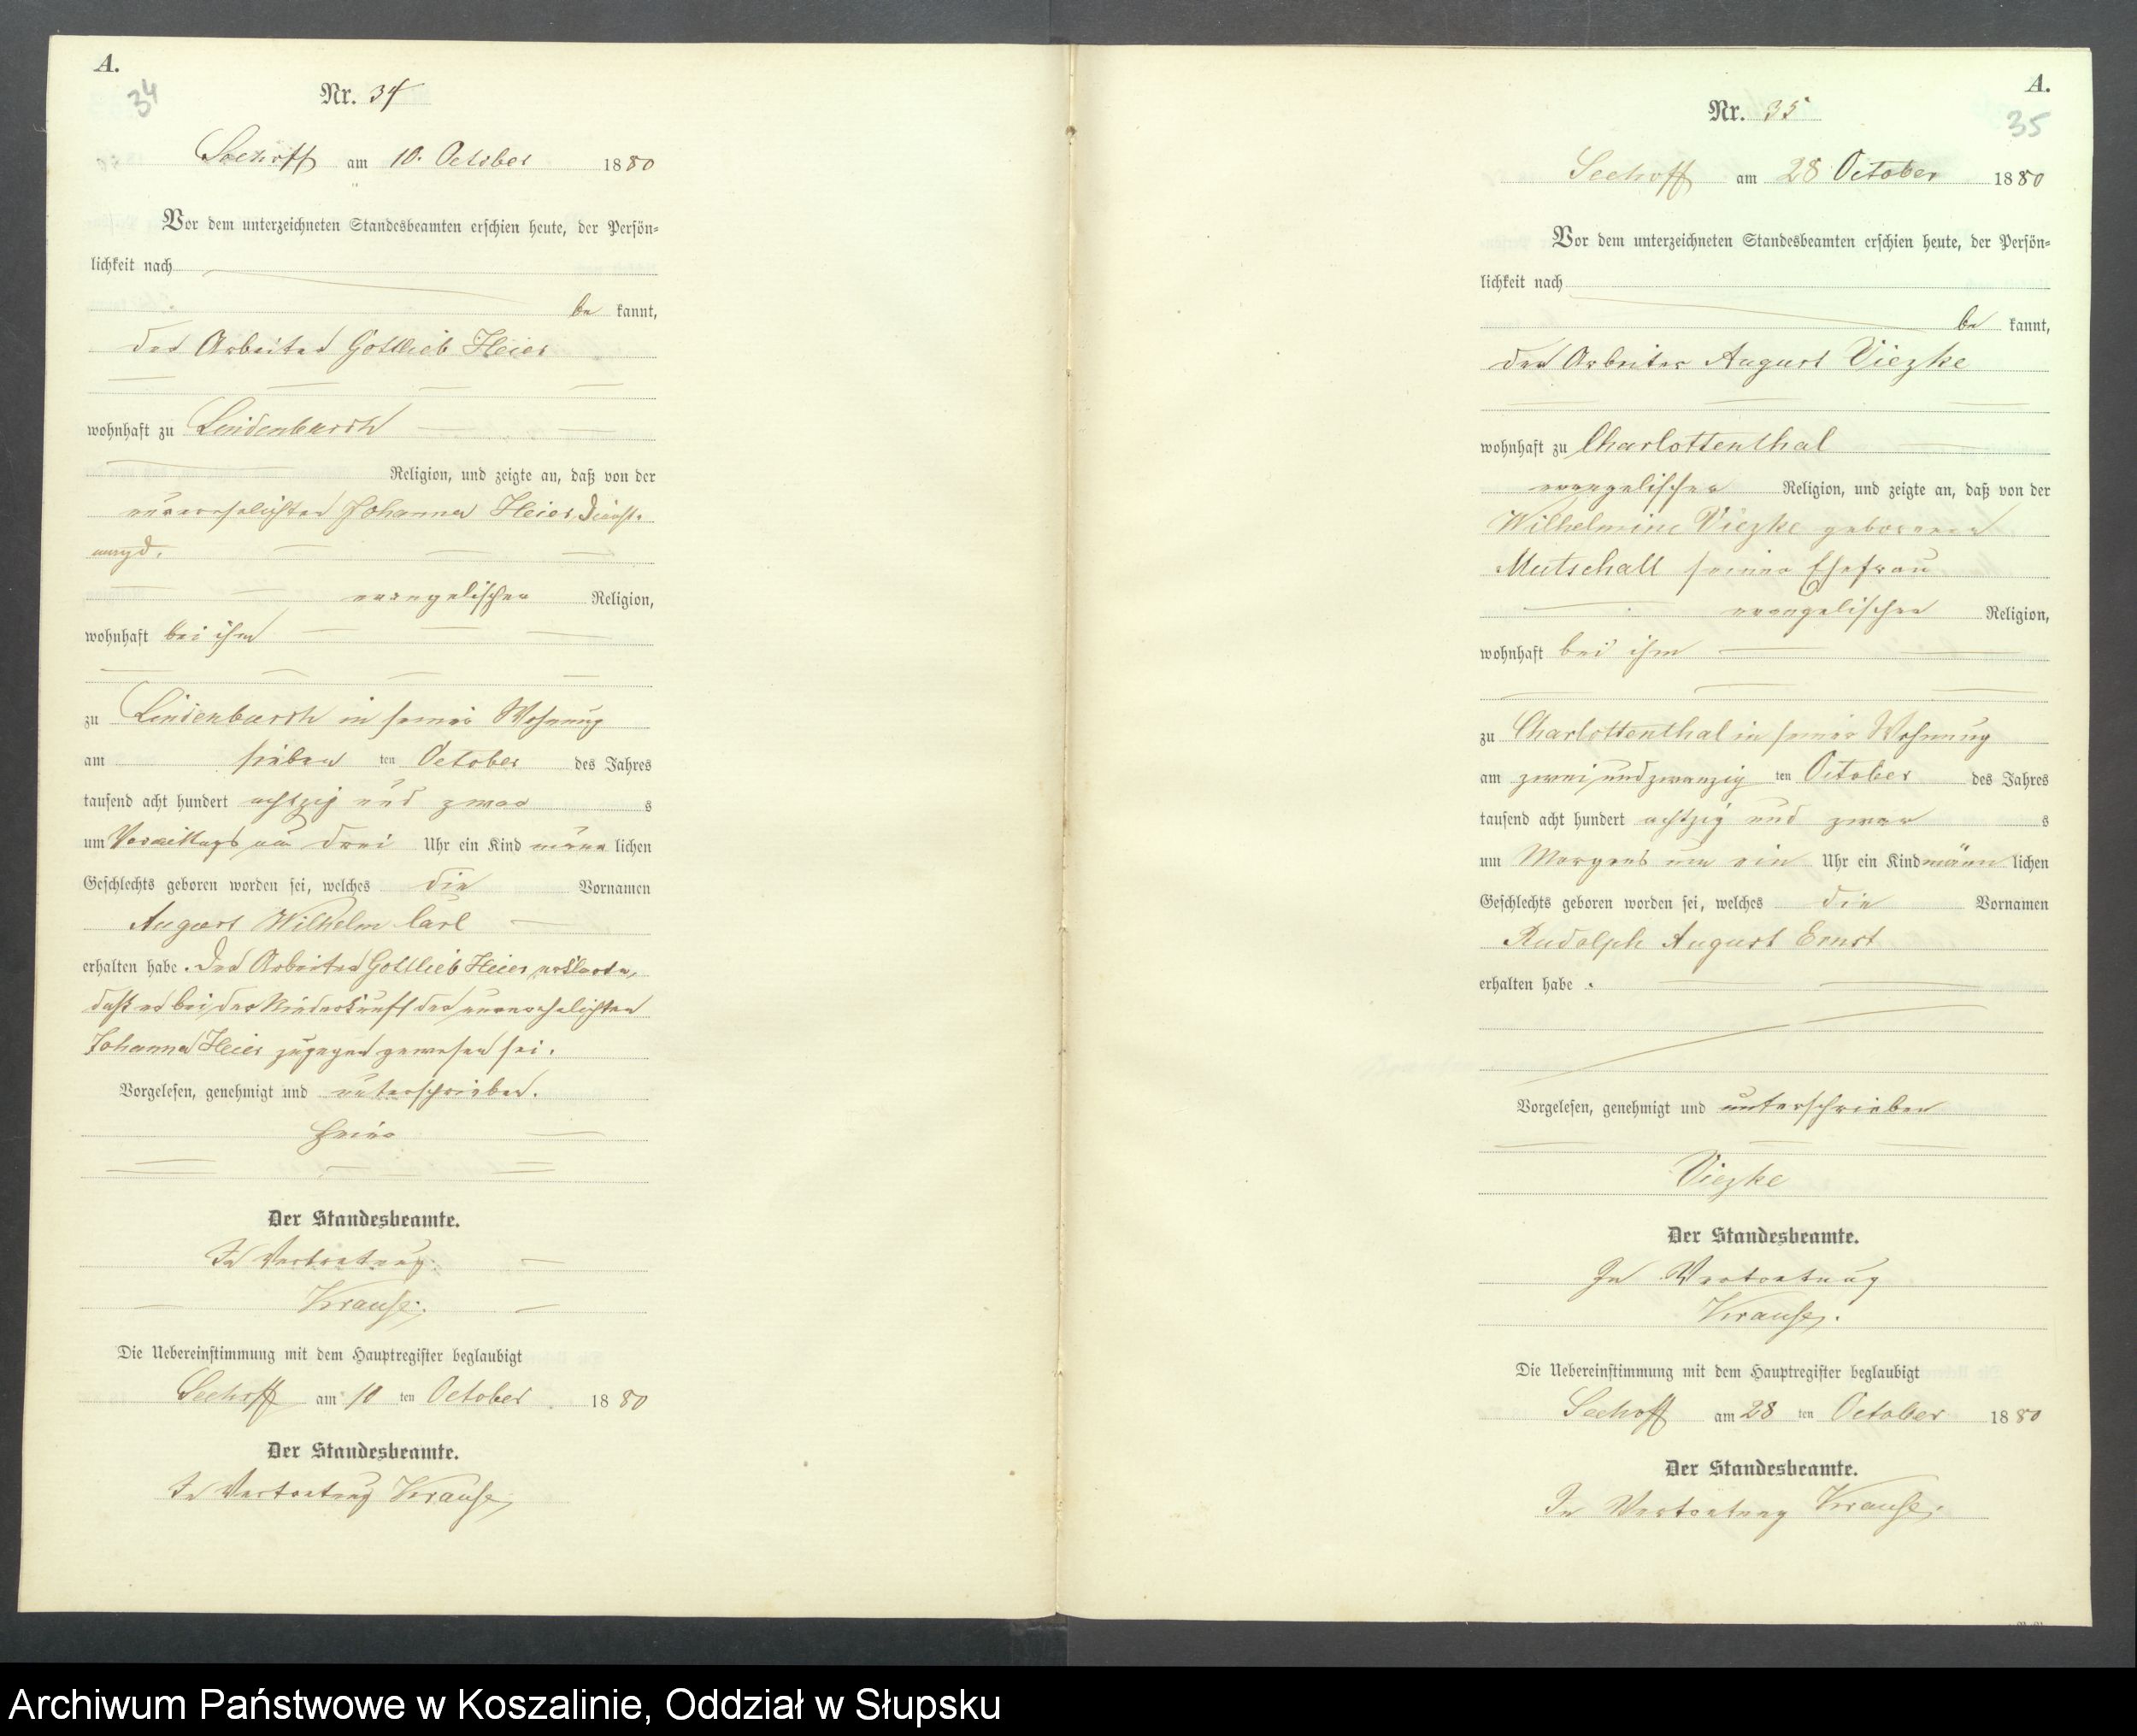 A.
34
Nr. 34
Seehoff am 10. October 1880
Vor dem unterzeichneten Standesbeamten erschien heute, der Persön-
lichkeit nach
be kannt,
der Arbeiter Gottlieb Heier
wohnhaft zu Lindenbusch
Religion, und zeigte an, daß von der
unverehelichten Johanna Heier, Dienst-
magd,
evangelischer Religion,
wohnhaft bei ihm
zu Lindenbusch in seiner Wohnung
am sieben ten October des Jahres
tausend acht hundert achtzig und zwar s
um Vormittags um drei Uhr ein Kind männ lichen
Geschlechts geboren worden sei, welches die Vornamen
August Wilhelm Carl
erhalten habe. Der Arbeiter Gottlieb Heier erklärte,
daß er bei der Niederkunft der unverehelichten
Johanna Heier zugegen gewesen sei.
Vorgelesen, genehmigt und unterschrieben.
Der Standesbeamte.
In Vertretung
Krause.
Die Uebereinstimmung mit dem Hauptregister beglaubigt
Seehoff am 10 ten October 1880
Der Standesbeamte.
In Vertretung Krause
A.
35
Nr. 35
Seehoff am 28 October 1880
Vor dem unterzeichneten Standesbeamten erschien heute, der Persön-
lichkeit nach
be kannt,
der Arbeiter August Viezke
wohnhaft zu Charlottenthal
evangelischer Religion, und zeigte an, daß von der
Wilhelmine Viezke geborenen
Mutschall seiner Ehefrau
evangelischer Religion,
wohnhaft bei ihm
zu Charlottenthal in seiner Wohnung
am zwei und zwanzig ten October des Jahres
tausend acht hundert achtzig und zwar s
um Morgens um ein Uhr ein Kind männ lichen
Geschlechts geboren worden sei, welches die Vornamen
Rudolph August Ernst
erhalten habe.
Vorgelesen, genehmigt und unterschrieben
Viezke
Der Standesbeamte.
In Vertretung
Krause.
Die Uebereinstimmung mit dem Hauptregister beglaubigt
Seehoff am 28 ten October 1880
Der Standesbeamte.
In Vertretung Krause.
Archiwum Państwowe w Koszalinie, Oddział w Słupsku